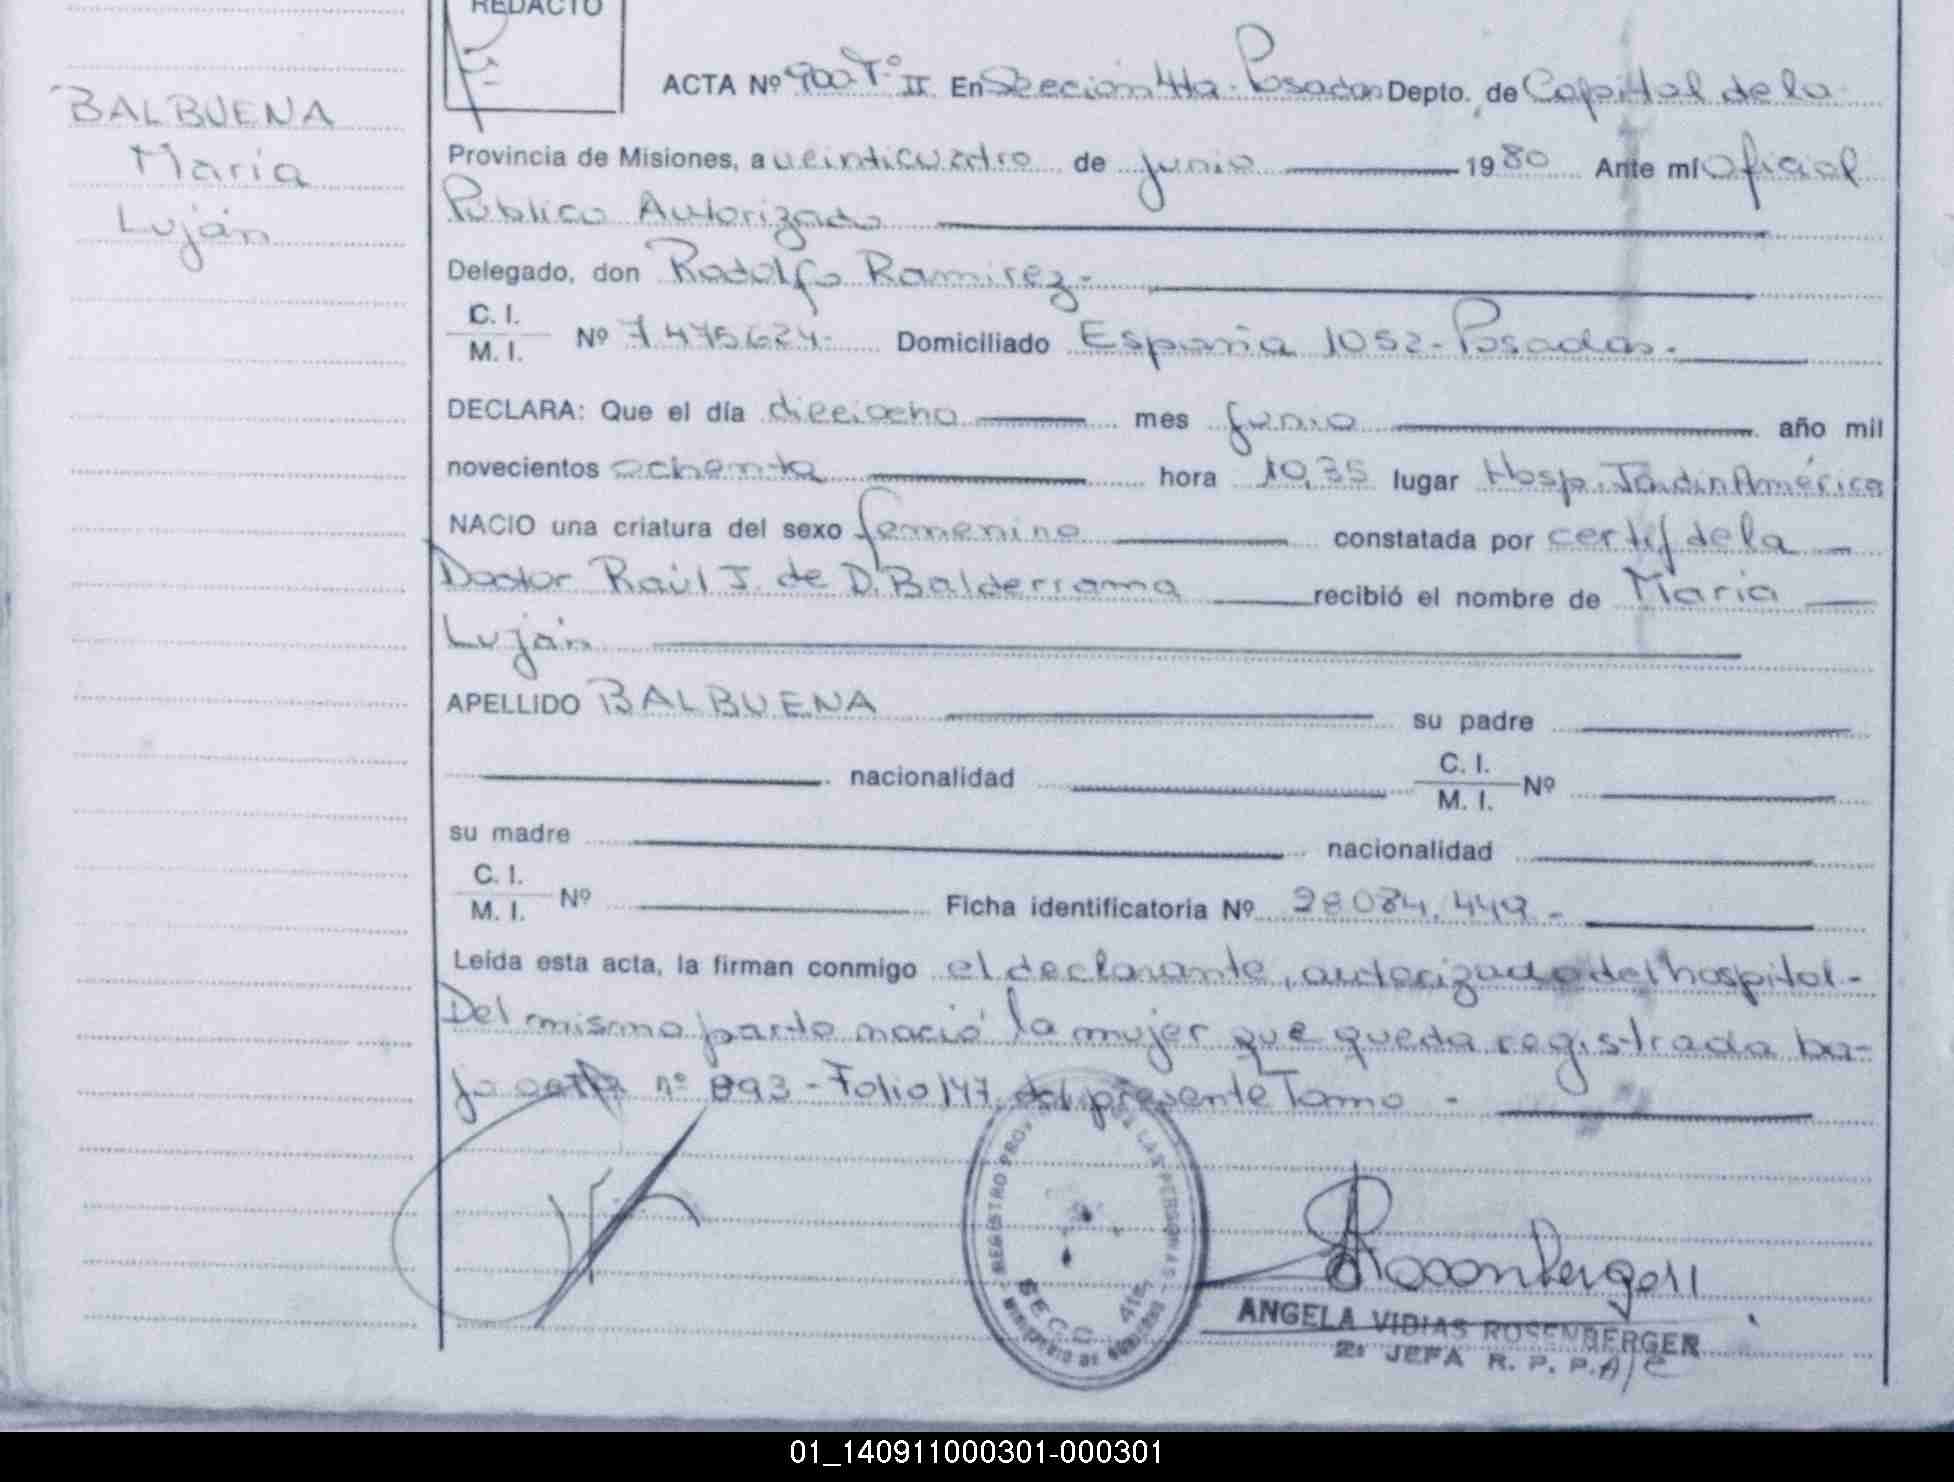 REDACTO
BALBUENA
María
Luján
ACTA Nº 900 Tº II En Sección 4ta. Posadas Depto. de Capital de la
Provincia de Misiones, a veinticuatro de junio 1980 Ante mí Oficial
Público Autorizado
Delegado, don Rodolfo Ramirez-
C. I.
M. I. Nº 7475624- Domiciliado España 1052-Posadas.
DECLARA: Que el día dieciocho mes junio año mil
novecientos ochenta hora 10,35 lugar Hosp. Jardin América
NACIO una criatura del sexo femenino constatada por certif de la
Doctor Raúl J. de D. Balderrama recibió el nombre de María
Luján
APELLIDO BALBUENA su padre
nacionalidad C. I.
M. I. Nº
su madre nacionalidad
C. I.
M. I. Nº Ficha identificatoria Nº 28084.449-
Leída esta acta, la firman conmigo el declarante, autorizado del hospital-
Del mismo parto nació la mujer que queda registrada ba-
jo acta nº 893-Folio 147 del presente Tomo -
REGISTRO PROV LAS PERSONAS
SECC 4ta
MINISTERIO DE
Rosenberger
ANGELA VIDIAS ROSENBERGER
2º JEFA R. P. P. A/C
01_140911000301-000301